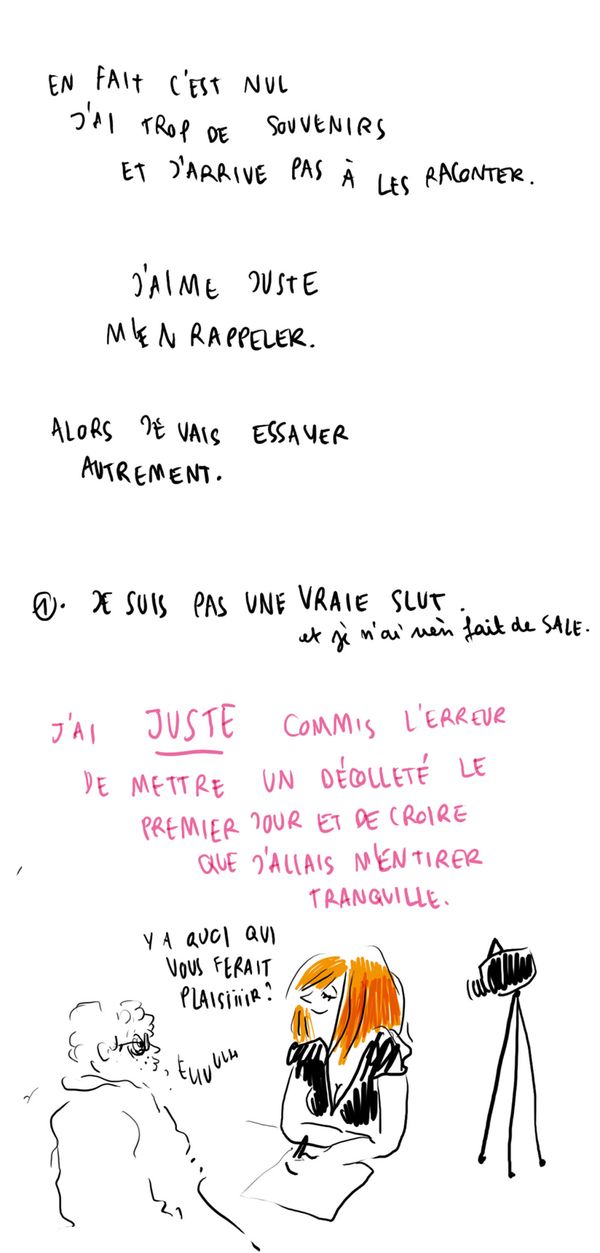 EN FAIT C'EST NUL
J'AI TROP DE SOUVENIRS
ET J'ARRIVE PAS À LES RACONTER.
J'AIME JUSTE
M'EN RAPPELER.
ALORS JE VAIS ESSAYER
AUTREMENT.
①. JE SUIS PAS UNE VRAIE SLUT.
et je n'ai rien fait de SALE.
J'AI JUSTE COMMIS L'ERREUR
DE METTRE UN DÉCOLLETÉ LE
PREMIER JOUR ET DE CROIRE
QUE J'ALLAIS M'EN TIRER
TRANQUILLE.
Y A QUOI QUI
VOUS FERAIT
PLAISIIIIR?
EUUUUH